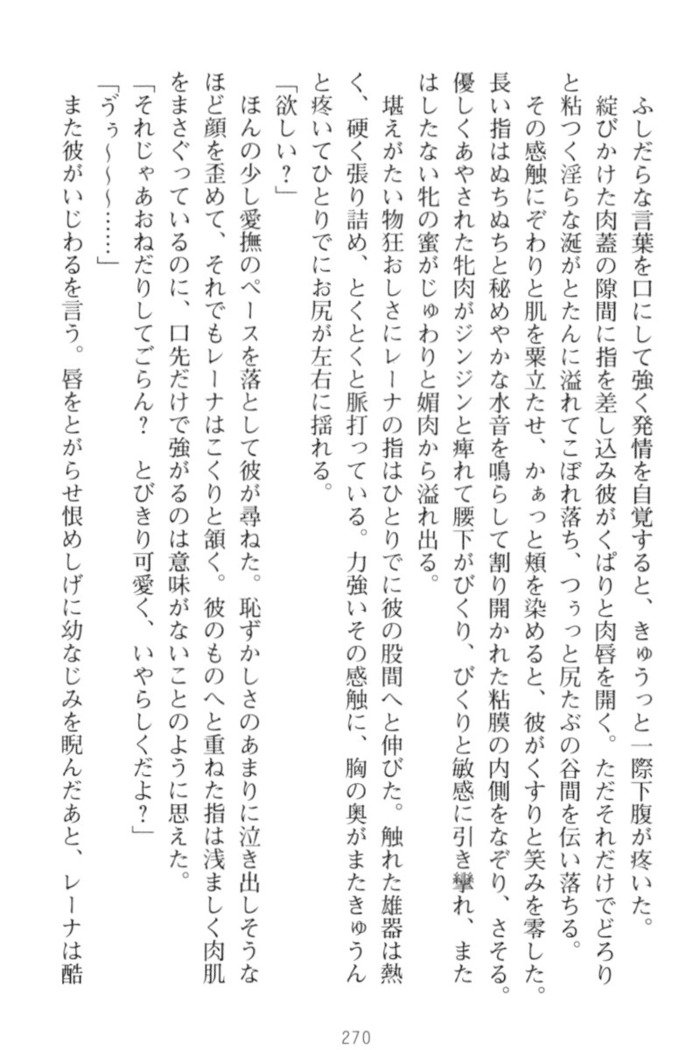 ふしだらな言葉を口にして強く発情を自覚すると、きゅうっと一際下腹が疼いた。
綻びかけた肉蓋の隙間に指を差し込み彼がくぱりと肉唇を開く。ただそれだけでどろり
と粘つく淫らな涎がとたんに溢れてこぼれ落ち、つぅっと尻たぶの谷間を伝い落ちる。
その感触にぞわりと肌を粟立たせ、かぁっと頬を染めると、彼がくすりと笑みを零した。
長い指はぬちぬちと秘めやかな水音を鳴らして割り開かれた粘膜の内側をなぞり、さそる。
優しくあやされた牝肉がジンジンと痺れて腰下がびくり、びくりと敏感に引き攣れ、また
はしたない牝の蜜がじゅわりと媚肉から溢れ出る。
堪えがたい物狂おしさにレーナの指はひとりでに彼の股間へと伸びた。触れた雄器は熱
く、硬く張り詰め、とくとくと脈打っている。力強いその感触に、胸の奥がまたきゅうん
と疼いてひとりでにお尻が左右に揺れる。
「欲しい？」
ほんの少し愛撫のペースを落として彼が尋ねた。恥ずかしさのあまりに泣き出しそうな
ほど顔を歪めて、それでもレーナはこくりと頷く。彼のものへと重ねた指は浅ましく肉肌
をまさぐっているのに、口先だけで強がるのは意味がないことのように思えた。
「それじゃあおねだりしてごらん？　とびきり可愛く、いやらしくだよ？」
「ゔぅ～～～……」
また彼がいじわるを言う。唇をとがらせ恨めしげに幼なじみを睨んだあと、レーナは酷
270